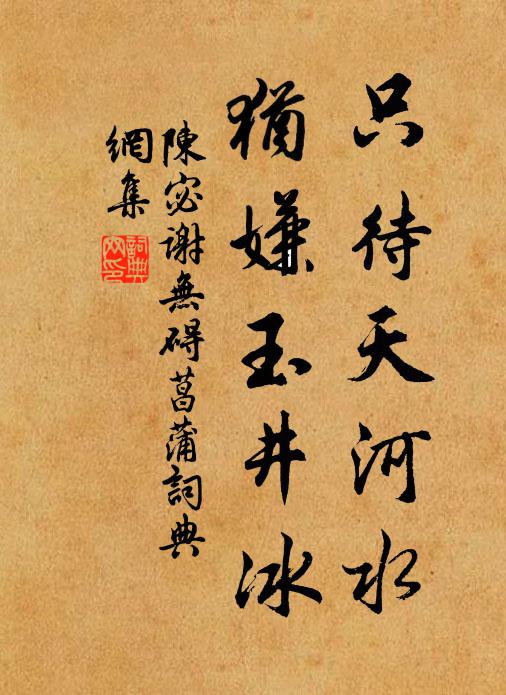 只待天河水
猶嫌玉井冰
陳宓謝無碍菖蒲詞典
網集
詞典
网印